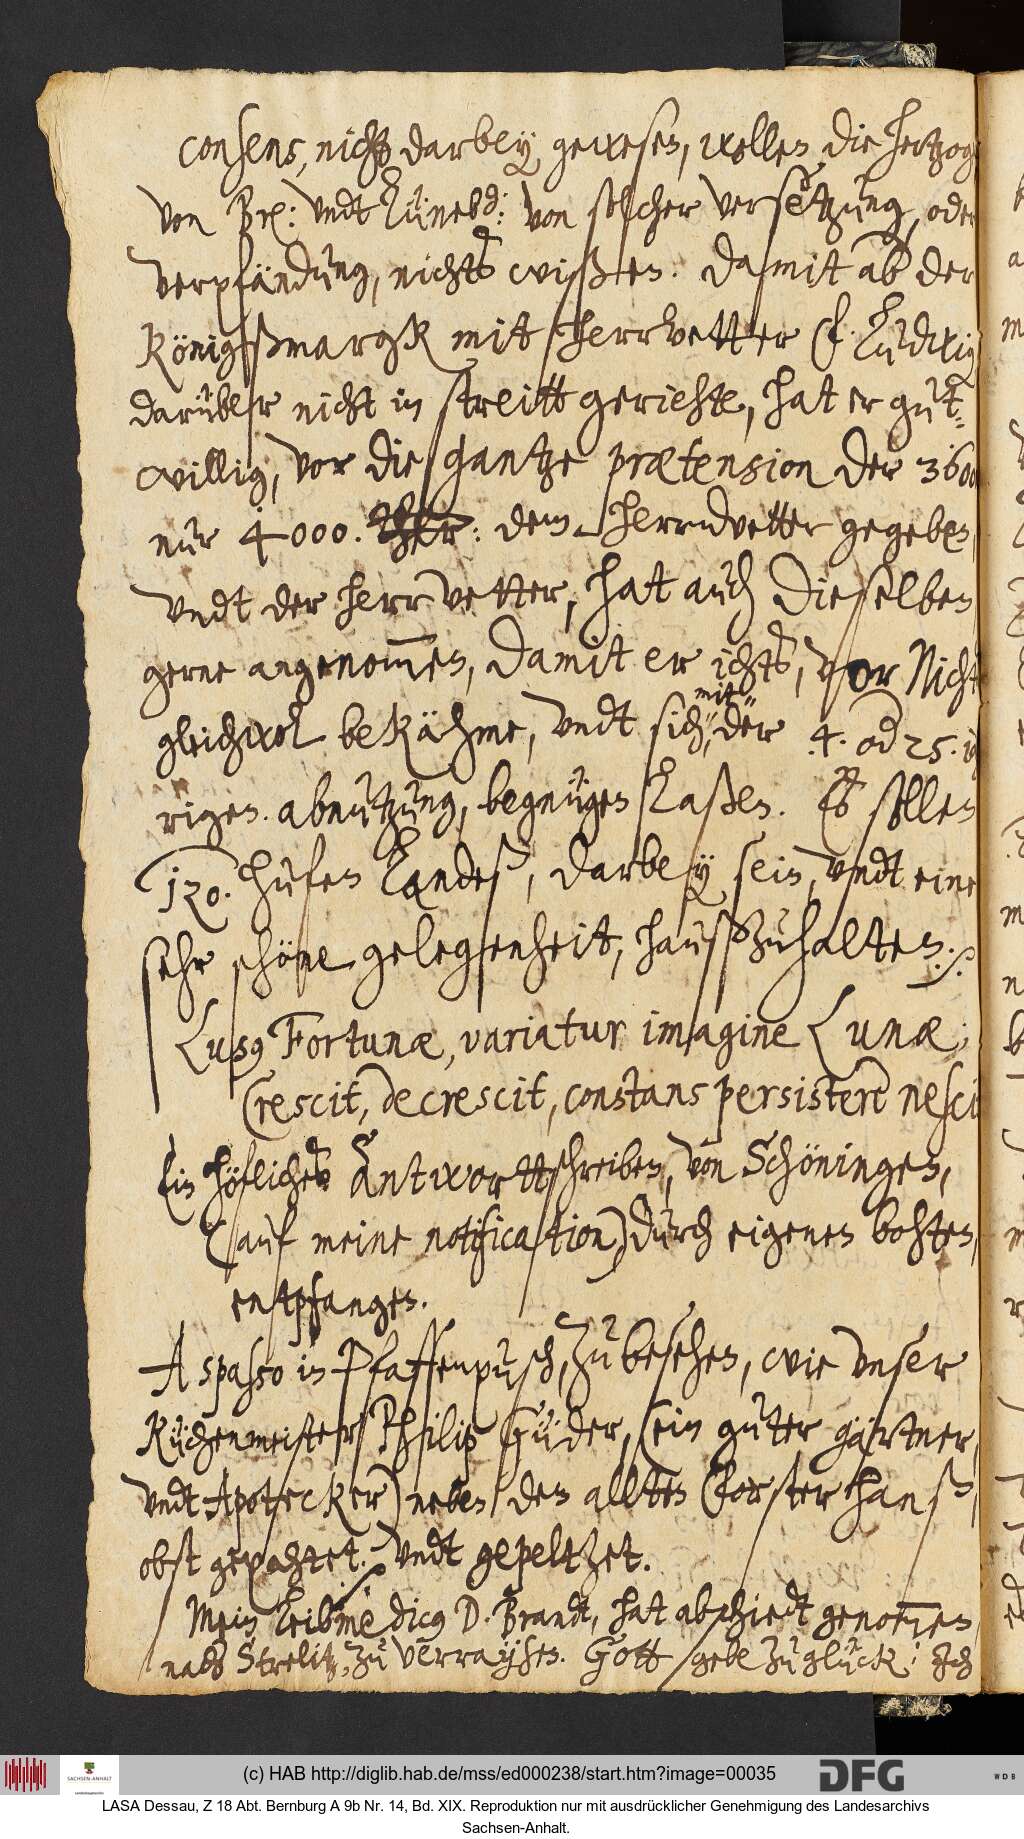 consens, nichts darbey gewesen, wollen die Hertzog
von Br: vndt Lünebd: von solcher versetzung, oder
verpfändung, nichts wißen. Damit ab der
Königßmargk mit herrvetter F. Ludwig
darüber nicht in streitt geriehte, hat er gut¬
willig, vor die gantze prætension der 3600
nur 4000. Thlr: dem herrnvetter gegeben,
vndt der herr vetter, hat auch dieselben
gerne angenommen, damit er ichts, vor Nicht
gleichwol bekähme, vndt sich, mit der 4. od 25. iä
rigen abnutzung, begnügen laßen. Es sollen
120. hufen Landeß, darbey sein, vndt eine
sehr schöne gelegenheit, haußzuhalten.
Lusus Fortunæ, variatur imagine Lunæ;
Crescit, decrescit, constans persistere nesci
Ein höfliches Antwortt schreiben, von Schöningen,
(auf meine notification) durch eigenen bohten,
entpfangen.
A spasso in Pfaffenpusch, zu besehen, wie vnser
Küchenmeister Philip Güder, (ein guter gärtner,
vndt Apotecker) neben den allten Forster hanß,
obst gepahtet. vndt gepeltzet.
Mein Leibmedicus D. Brandt, hat abschiedt genommen
nach Strelitz, zu verraysen. Gott gebe zu glück! Ich
(c) HAB http://diglib.hab.de/mss/ed000238/start.htm?image=00035
SACHSEN-ANHALT
DFG
WDB
LASA Dessau, Z 18 Abt. Bernburg A 9b Nr. 14, Bd. XIX. Reproduktion nur mit ausdrücklicher Genehmigung des Landesarchivs
Sachsen-Anhalt.